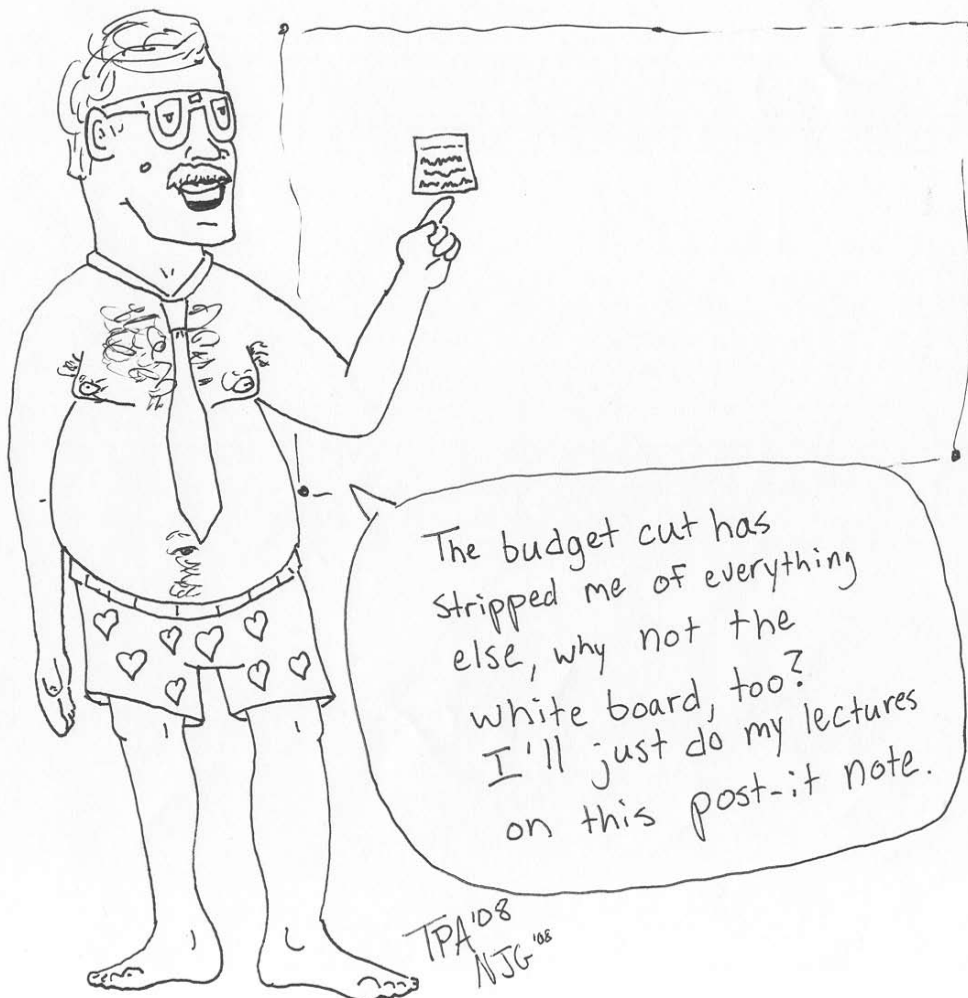 The budget cut has
stripped me of everything
else, why not the
white board, too?
I'll just do my lectures
on this post-it note.
TPA '08
NJG '08